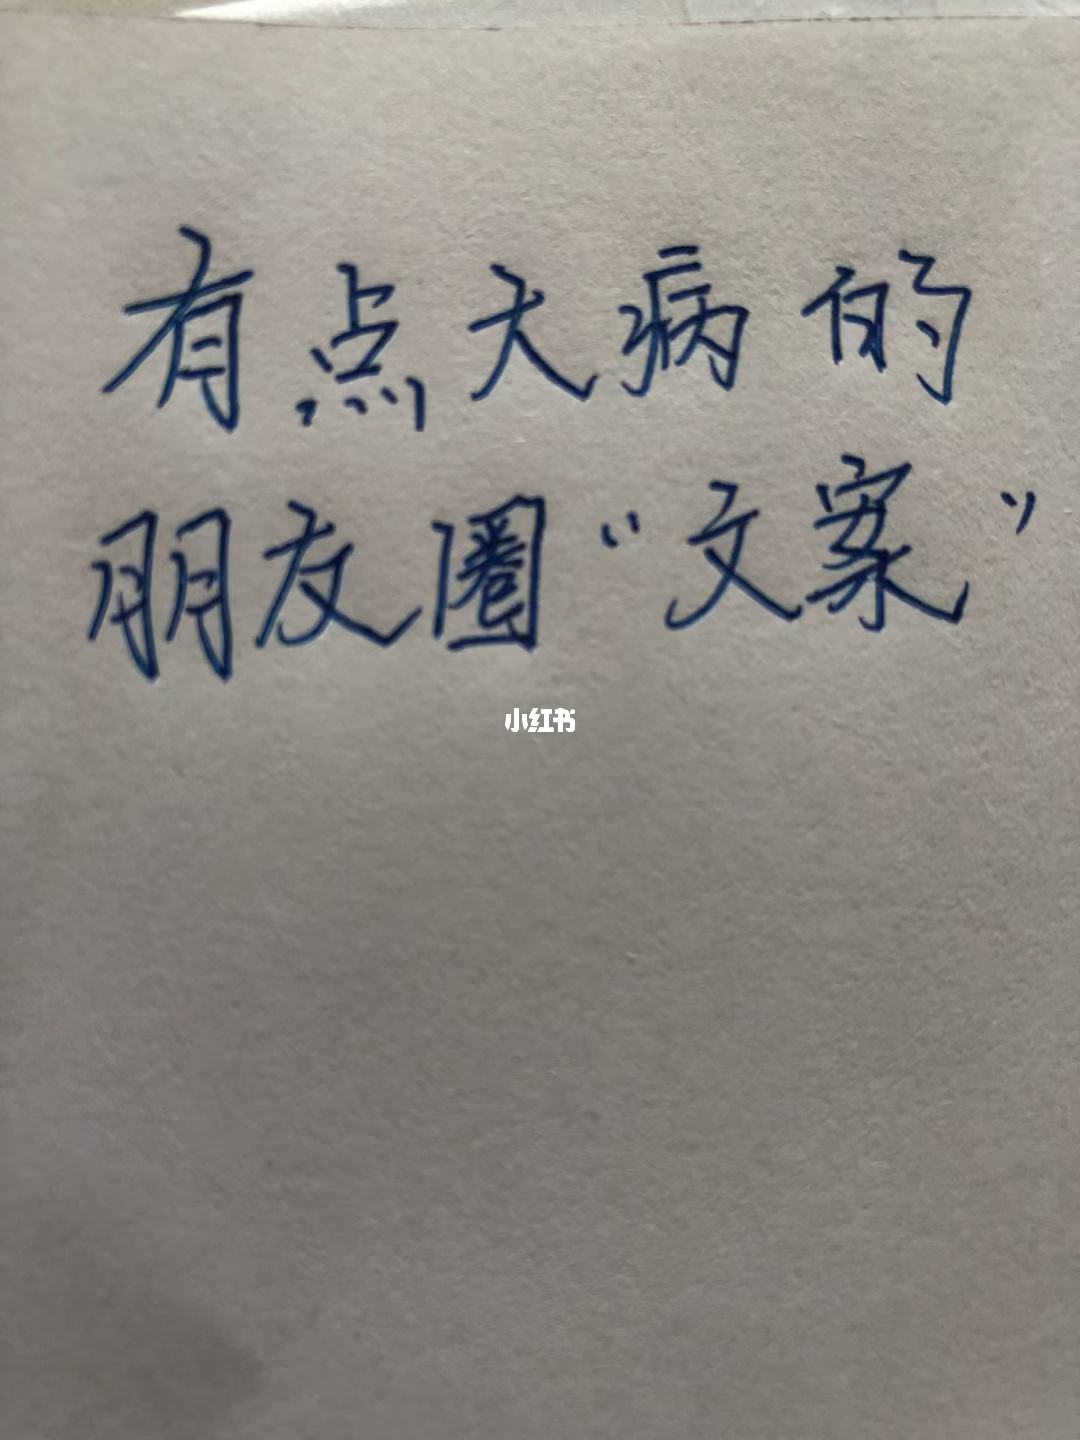 有点大病的
朋友圈“文案”
小红书